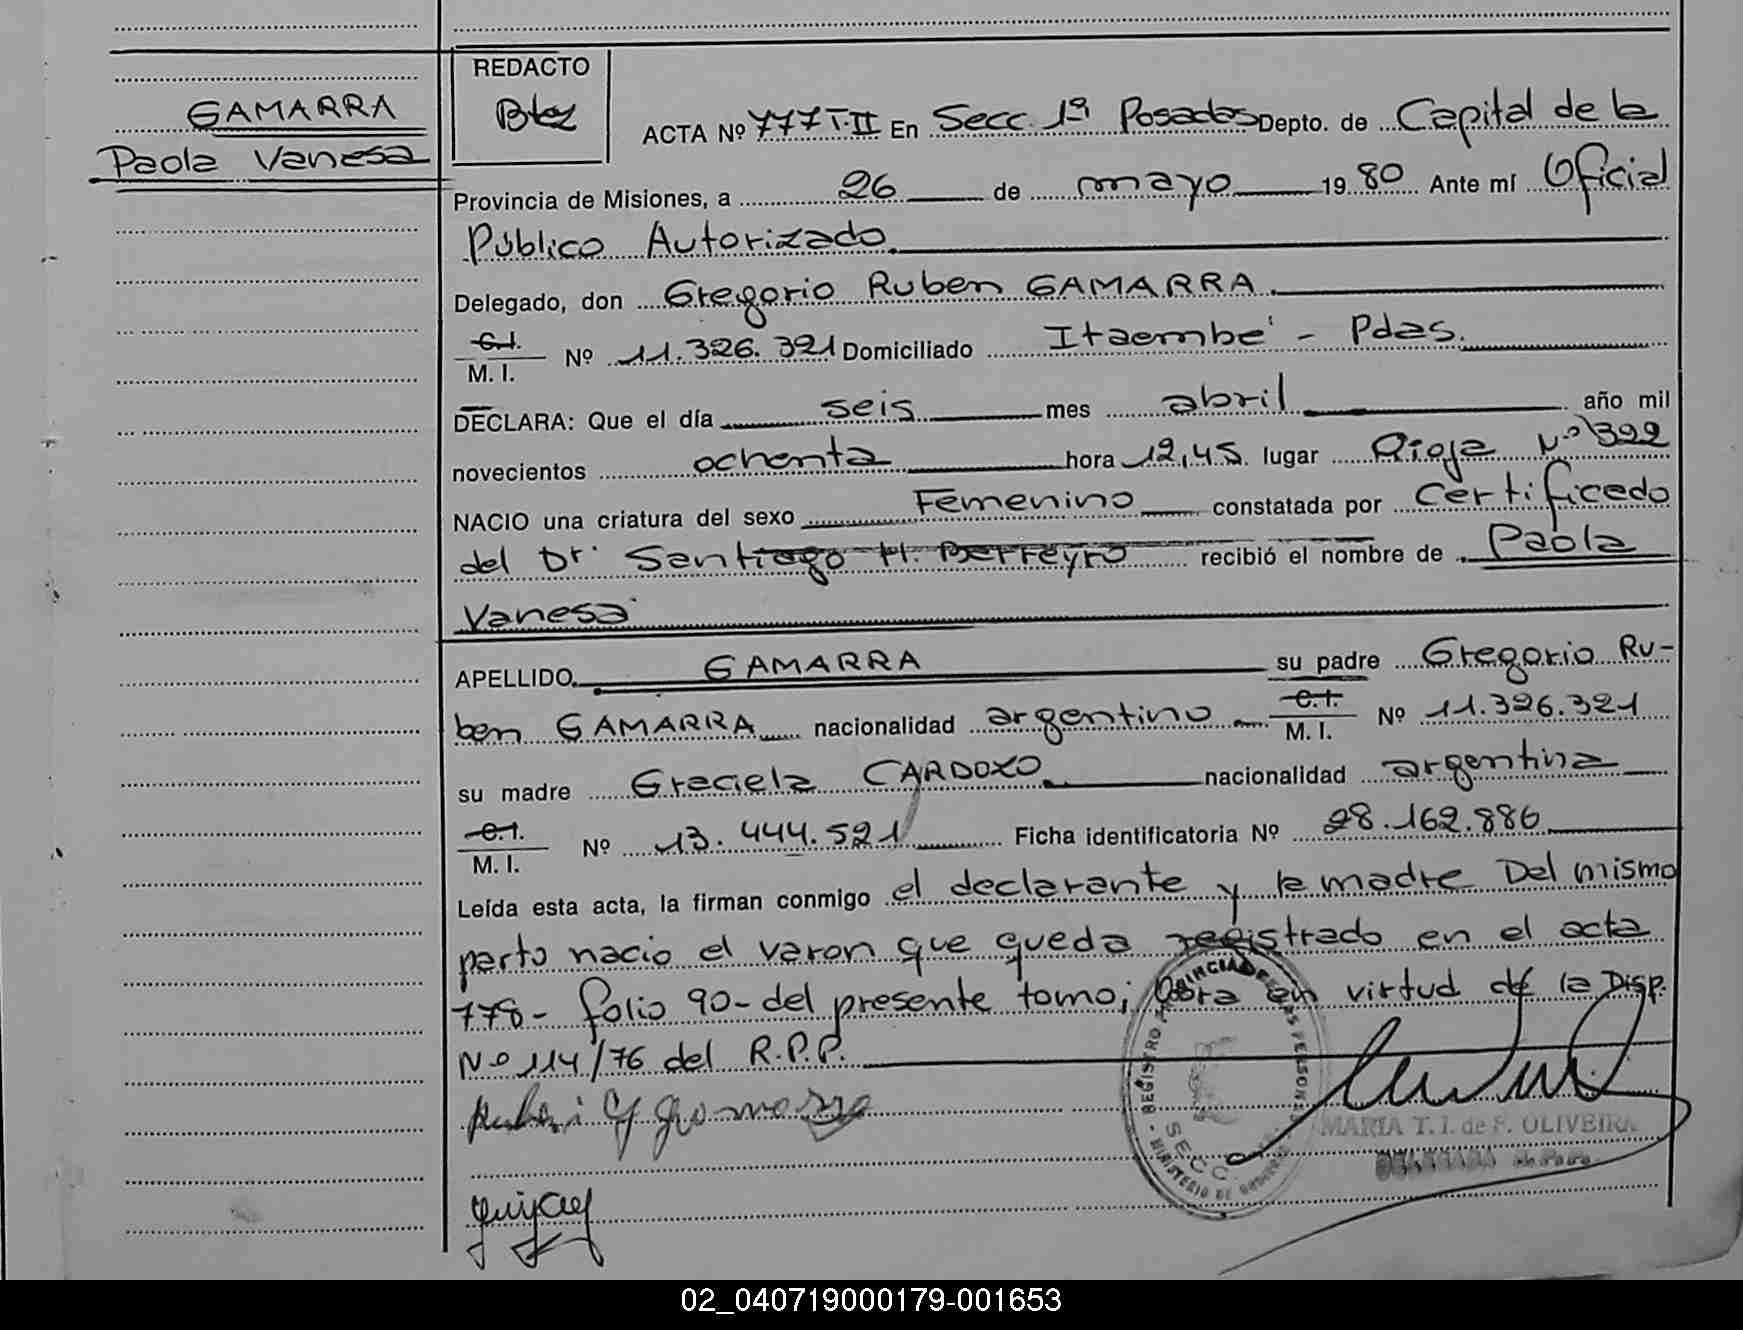 GAMARRA
Paola Vanesa
REDACTO
ACTA Nº 777 T·II En Secc. 1ª Posadas Depto. de Capital de la
Provincia de Misiones, a 26 de mayo 1980 Ante mí Oficial
Público Autorizado.
Delegado, don Gregorio Ruben GAMARRA.
C.I.
M. I. Nº 11.326.321 Domiciliado Itaembé - Pdas.
DECLARA: Que el día seis mes abril año mil
novecientos ochenta hora 12,45 lugar Rioja Nº 1322
NACIO una criatura del sexo Femenino constatada por Certificado
del Dr. Santiago H. Berreyro recibió el nombre de Paola
Vanesa
APELLIDO GAMARRA su padre Gregorio Ru-
ben GAMARRA nacionalidad argentino C.I. M. I. Nº 11.326.321
su madre Graciela CARDOZO nacionalidad argentina
C.I.
M. I. Nº 13.444.521 Ficha identificatoria Nº 28.162.886
Leída esta acta, la firman conmigo el declarante y la madre Del mismo
parto nacio el varon que queda registrado en el acta
778- folio 90- del presente tomo; Obra en virtud de la Disp.
Nº 114/76 del R.P.P.
REGISTRO PROVINCIAL DE LAS PERSONAS
SECC.
MINISTERIO DE GOBIERNO
MARIA T. I. de F. OLIVEIRA
02_040719000179-001653